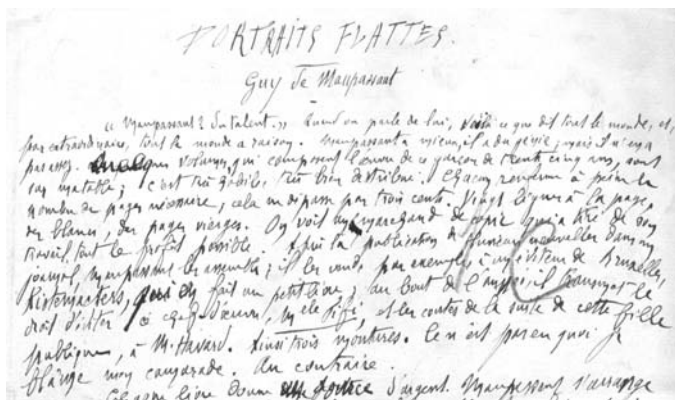 PORTRAITS FLATTES.
Guy de Maupassant
« Maupassant ? Du talent. » Quand on parle de lui, voilà ce que dit tout le monde, et,
par extraordinaire, tout le monde a raison. Maupassant a mieux, il a du génie ; mais il n'en a
pas assez. volumes, qui composent l'œuvre de ce garçon de trente cinq ans, sont
sur ma table ; c'est très très bien distribué. Chacun renferme à peine le
nombre de pages nécessaire, cela ne dépasse pas trois cents. Vingt lignes à la page,
des blancs, des pages vierges. On voit de copie qui a tiré de son
travail tout le profit possible. Après la publication de plusieurs nouvelles dans un
journal, Maupassant les assemble ; il les vend, par exemple à un éditeur de Bruxelles,
Kistemaeckers, qui en fait un petit livre ; au bout de l'année, il transmet le
droit d'éditer ce chef-d'œuvre, Mlle Fifi, et les contes de la suite de cette fille
publique, à M. Havard. Ainsi trois montures. Ce n'est pas en quoi je
blâme mon camarade. Au contraire.
Chaque livre donne d'argent. Maupassant s'arrange